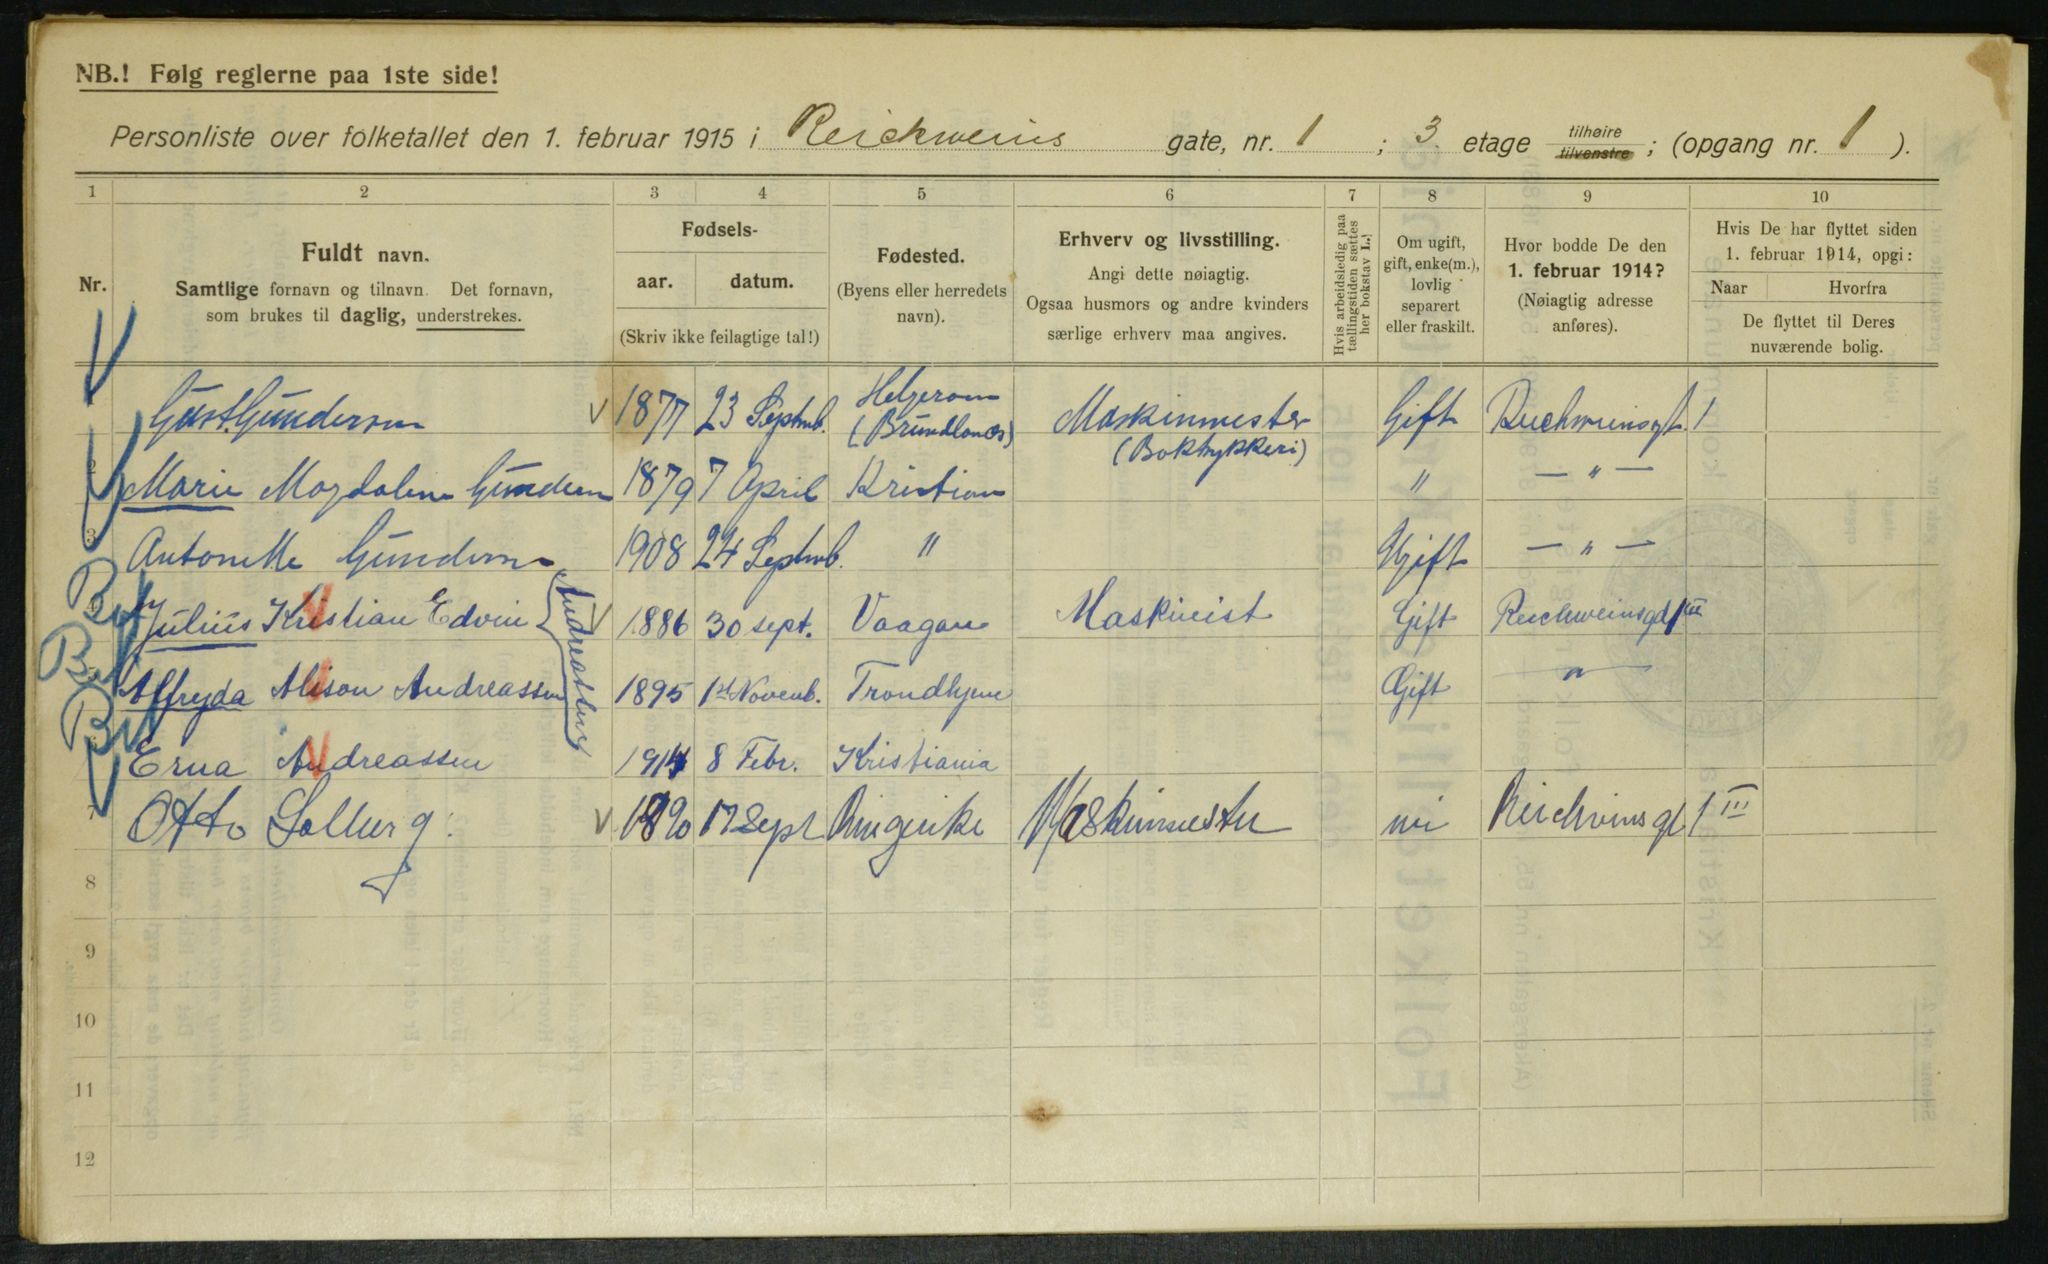 NB.! Følg reglerne paa 1ste side!
Personliste over folketallet den 1. februar 1915 i Reichweins gate, nr. 1 ; 3. etage tilhøire tilvenstre ; (opgang nr. 1 ).
1 2 3 4 5 6 7 8 9 10
Nr.
Fuldt navn.
Samtlige fornavn og tilnavn. Det fornavn,
som brukes til daglig, understrekes.
Fødsels-
aar. datum.
(Skriv ikke feilagtige tal!)
Fødested.
(Byens eller herredets
navn).
Erhverv og livsstilling.
Angi dette nøiagtig.
Ogsaa husmors og andre kvinders
særlige erhverv maa angives.
Hvis arbeidsledig paa
tællingstiden sættes
her bokstav L.!
Om ugift,
gift, enke(m.),
lovlig
separert
eller fraskilt.
Hvor bodde De den
1. februar 1914?
(Nøiagtig adresse
anføres).
Hvis De har flyttet siden
1. februar 1914, opgi:
Naar Hvorfra
De flyttet til Deres
nuværende bolig.
Gust. Gundersen 1877 23 Septmb. Helgeroen (Brundlanes) Maskinmester (Boktrykkeri) Gift Reichweinsgt. 1
2 Marie Magdalene Gundersen 1879 7 April Kristian " — " —
3 Antonette Gundersen 1908 24 Septmb. " Ugift — " —
4 Julius Kristian Edvin Andreassen 1886 30 sept. Vaagan Maskinist Gift Reichweinsgd 1 III
Alfryda Alison Andreassen 1895 1st Novemb. Trondhjem Gift "
Erna Andreassen 1914 8 Febr. Kristiania
7 Otto Solberg. 1890 17 Sept Ringerike Maskinmester nei Reichvinsgt 1 III
8
9
10
11
12